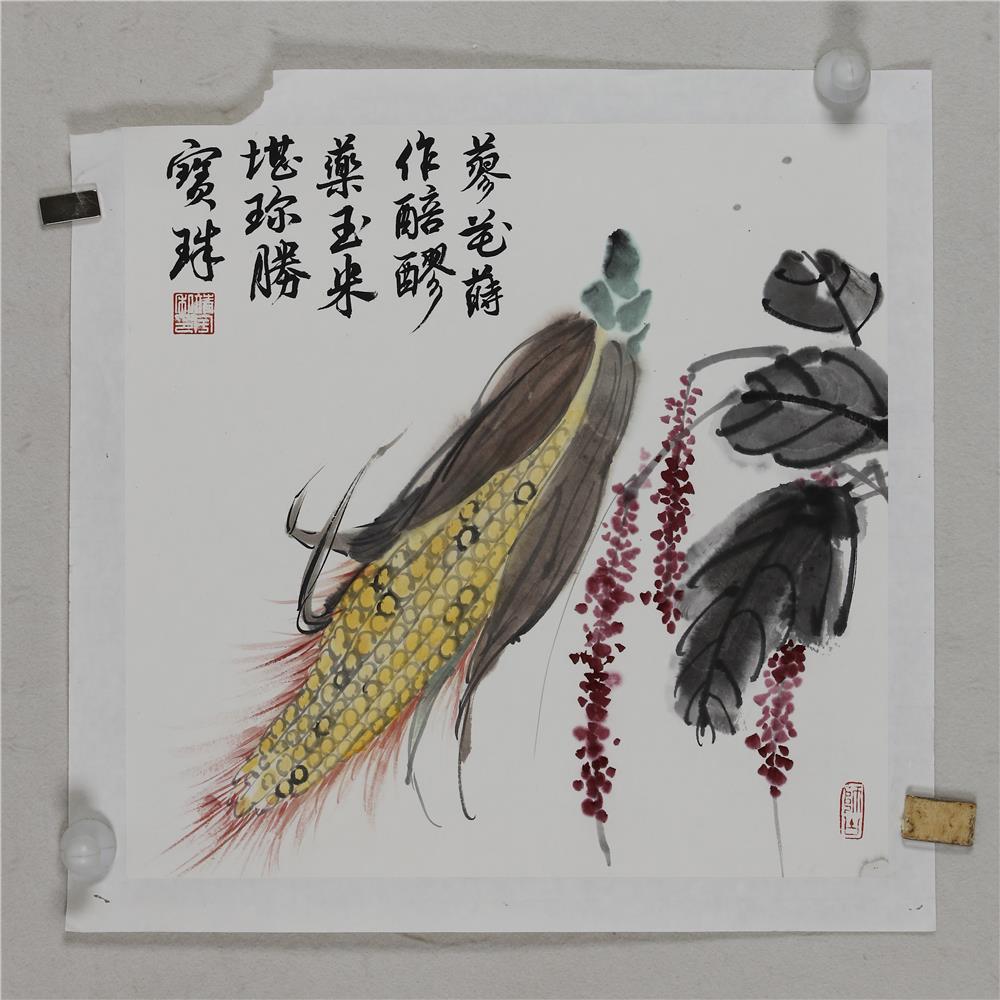 蓼花蒔
作醅醪
藥玉米
堪珎勝
寶珠